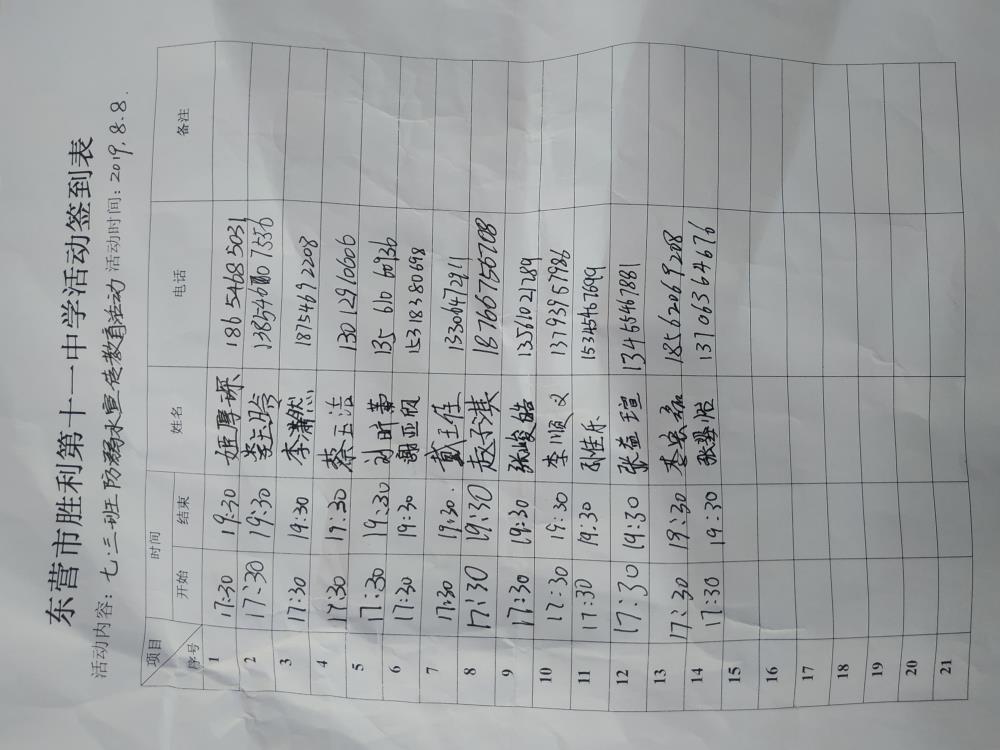 东营市胜利第十一中学活动签到表
活动内容：七.三班防溺水宣传教育活动 活动时间：2019.8.8.
项目 时间 姓名 电话 备注
序号 开始 结束
1 17:30 19:30 姬厚琛 18654685031
2 17:30 19:30
3 17:30 19:30 李潇然 18754692208
4 17:30 19:30 蔡玉洁 13012910006
5 17:30 19:30 135 610 60936
6 17:30 19:30 谢亚顺 15318380698
7 17:30 19:30. 戴玉佳 13306472911
8 17:30 19:30 赵子淇 18766756708
9 17:30 19:30 张峻皓 13561021289
10 17:30 19:30 李顺义 13793957986
11 17:30 19:30 孙佳乐 15345467699
12 17:30 19:30 张益瑄 13455467881
13 17:30 19:30 18562069208
14 17:30 19:30 13706364676
15
16
17
18
19
20
21